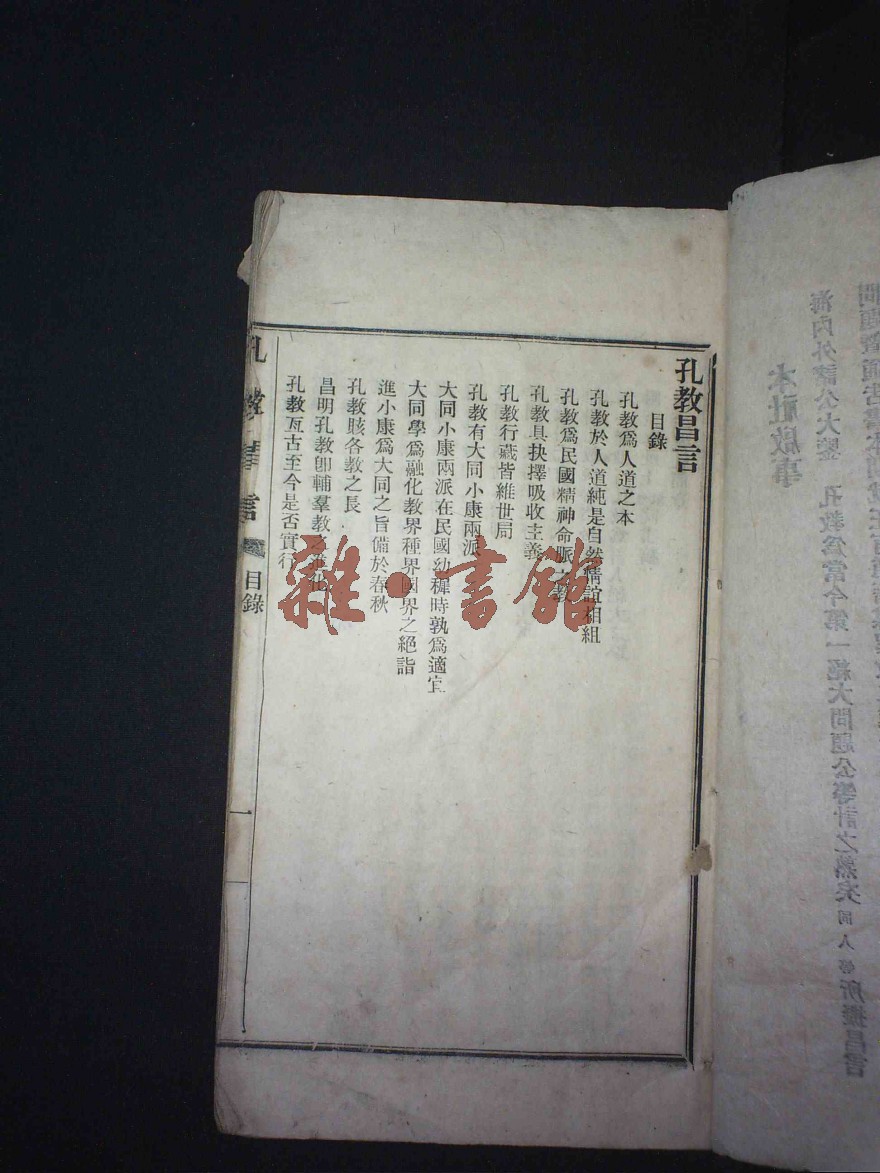 孔教昌言
目錄
孔教爲人道之本
孔教於人道純是自然情誼相組
孔教爲民國精神命脈之教
孔教具抉擇吸收主義
孔教行藏皆維世局
孔教有大同小康兩派
大同小康兩派在民國幼穉時孰爲適宜
大同學爲融化教界種界國界之絕詣
進小康爲大同之旨備於春秋
孔教賅各教之長
昌明孔教卽輔羣教之進化
孔教亙古至今是否實行
孔教昌言
目錄
雜書館
本社啟事
海內外諸公大鑒 孔教爲當今第一絕大問題公等計之熟矣同人等所擬昌言